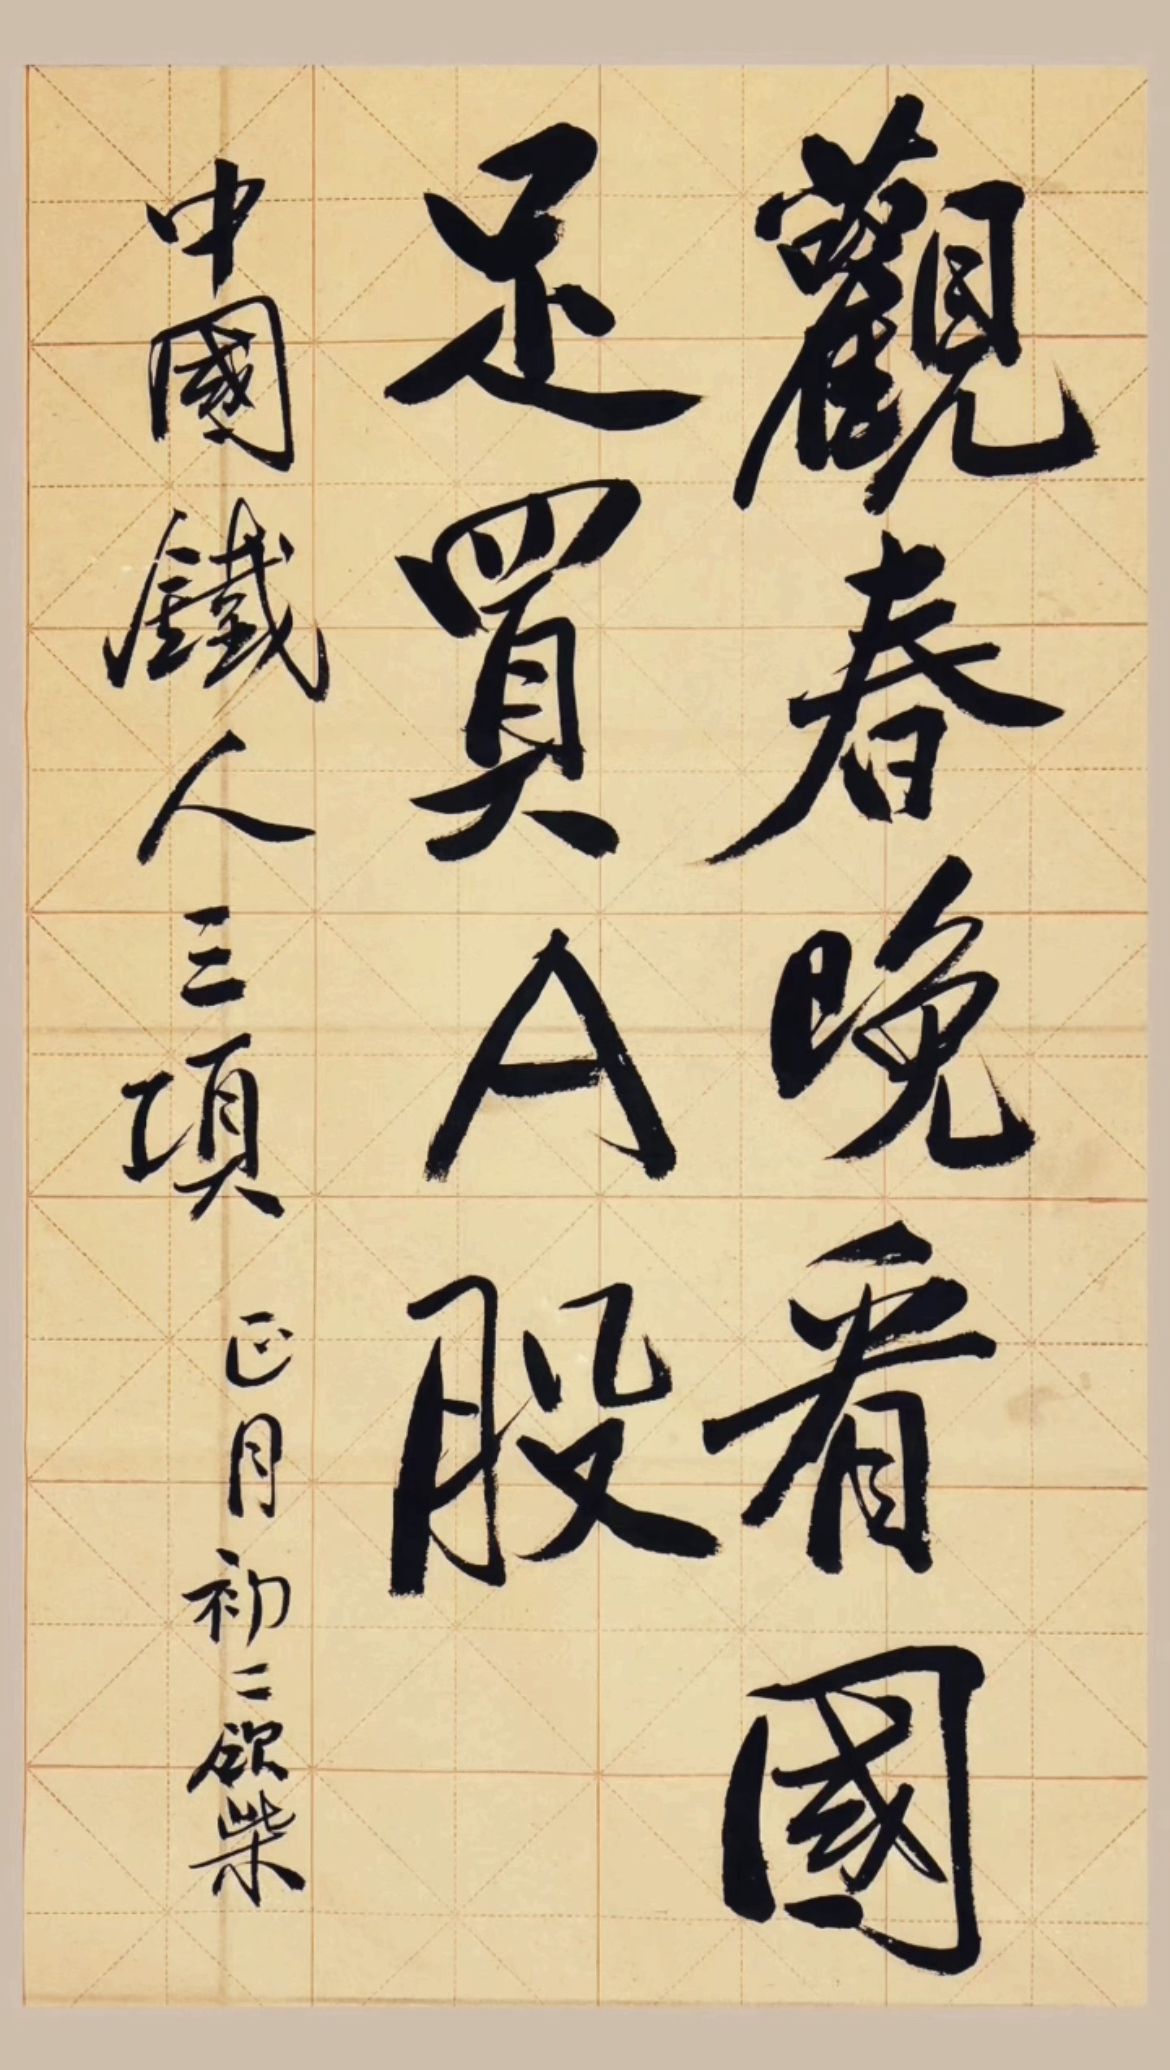 觀春晚看國
足買A股
中國鐵人三項
正月初二欽柴